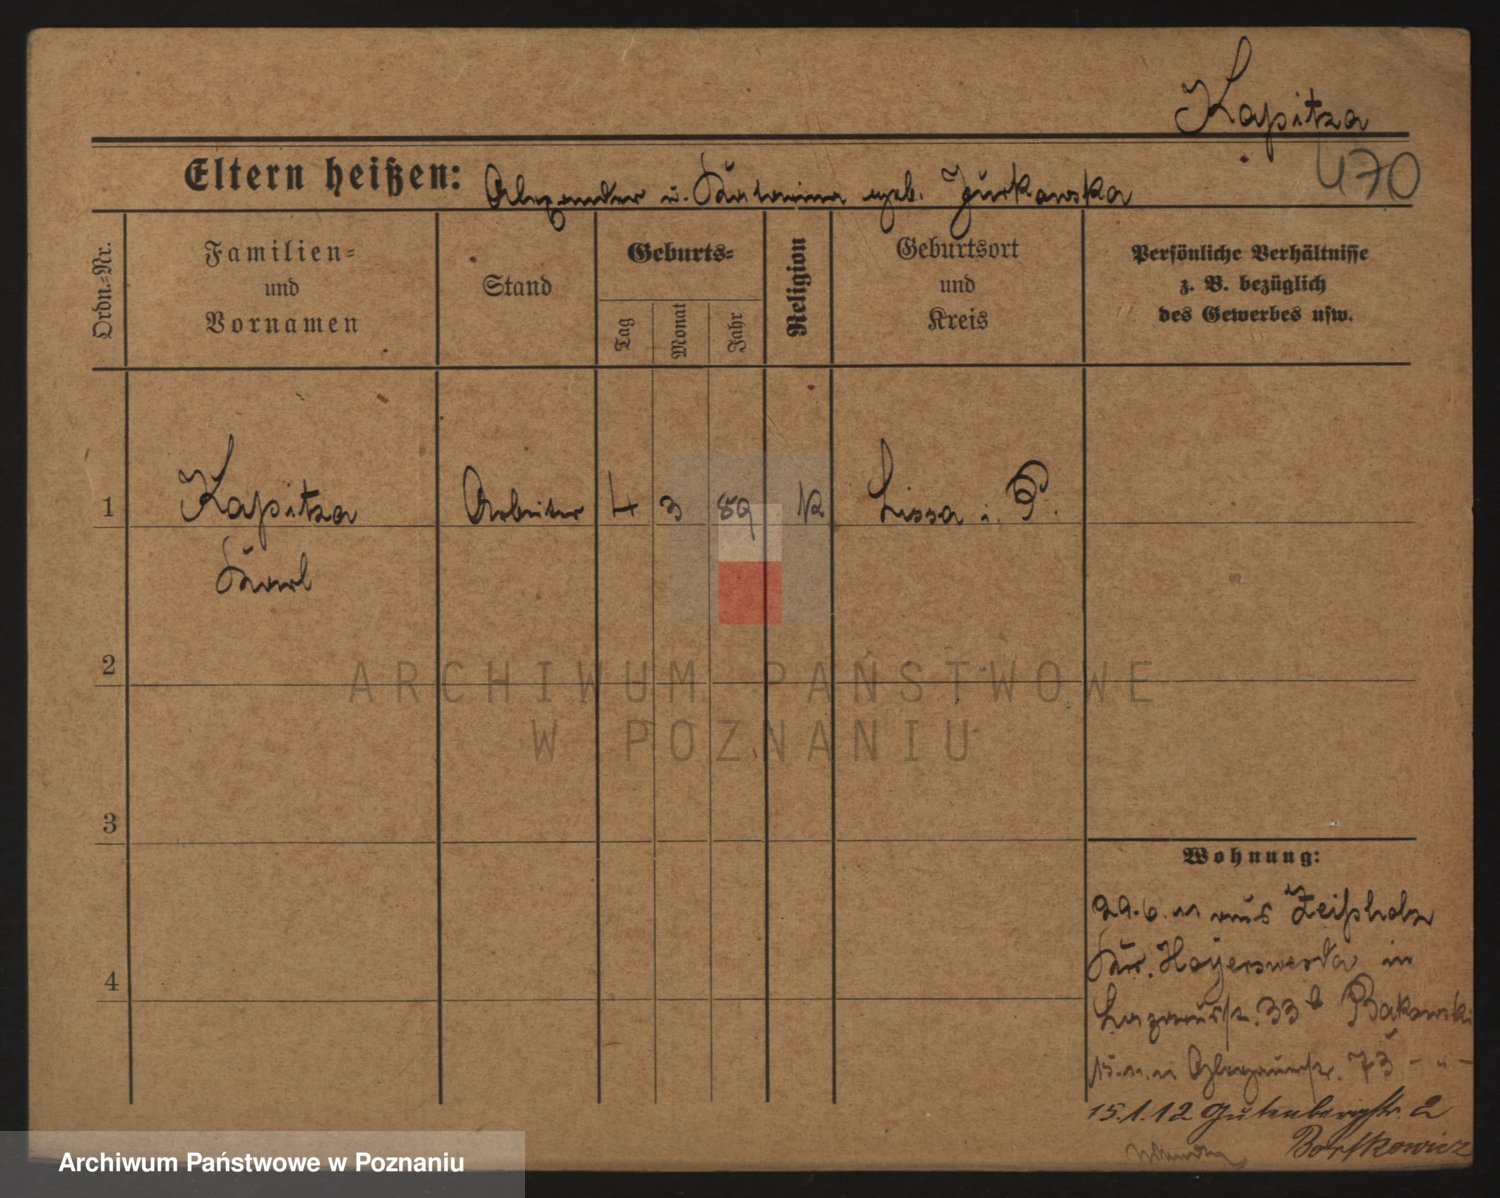 Kapitza
470
Eltern heißen: Alexander u. Katarina geb. Jurkowska
Ordn.=Nr.
Familien=
und
Vornamen
Stand
Geburts=
Tag
Monat
Jahr
Religion
Geburtsort
und
Kreis
Persönliche Verhältnisse
z. B. bezüglich
des Gewerbes usw.
1 Kapitza Arbeiter 4 3 89 K Lissa i. P.
Karl
2
3
4
Wohnung:
29.6.11 aus Zeißholz
Kr. Hoyerswerda in
Lazarusstr. 33b Bąkowski
15.11.11 73 - " -
15.1.12 Gutenbergstr. 2
Bartkowicz
ARCHIWUM PAŃSTWOWE
W POZNANIU
Archiwum Państwowe w Poznaniu